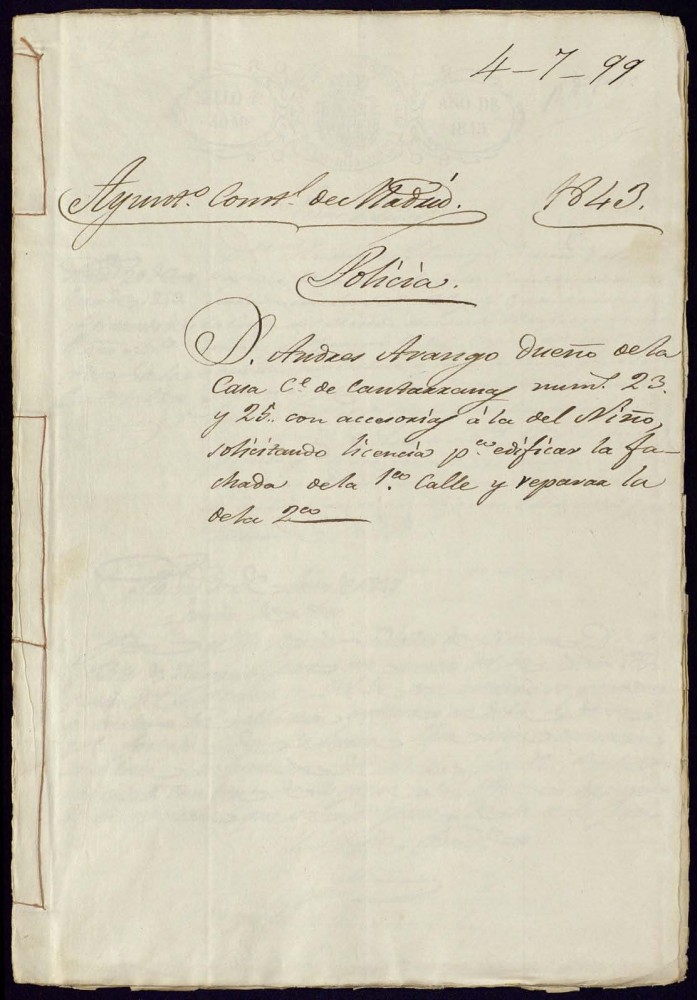 4-7-99
Ayunt.o Const.l de Madrid. 1843.
Policía.
D. Andres Arango dueño de la
Casa C.e de Cantarranas num.s 23.
y 25. con accesorias á la del Niño,
solicitando licencia p.a edificar la fa-
chada de la 1.a Calle y reparar la
de la 2.a